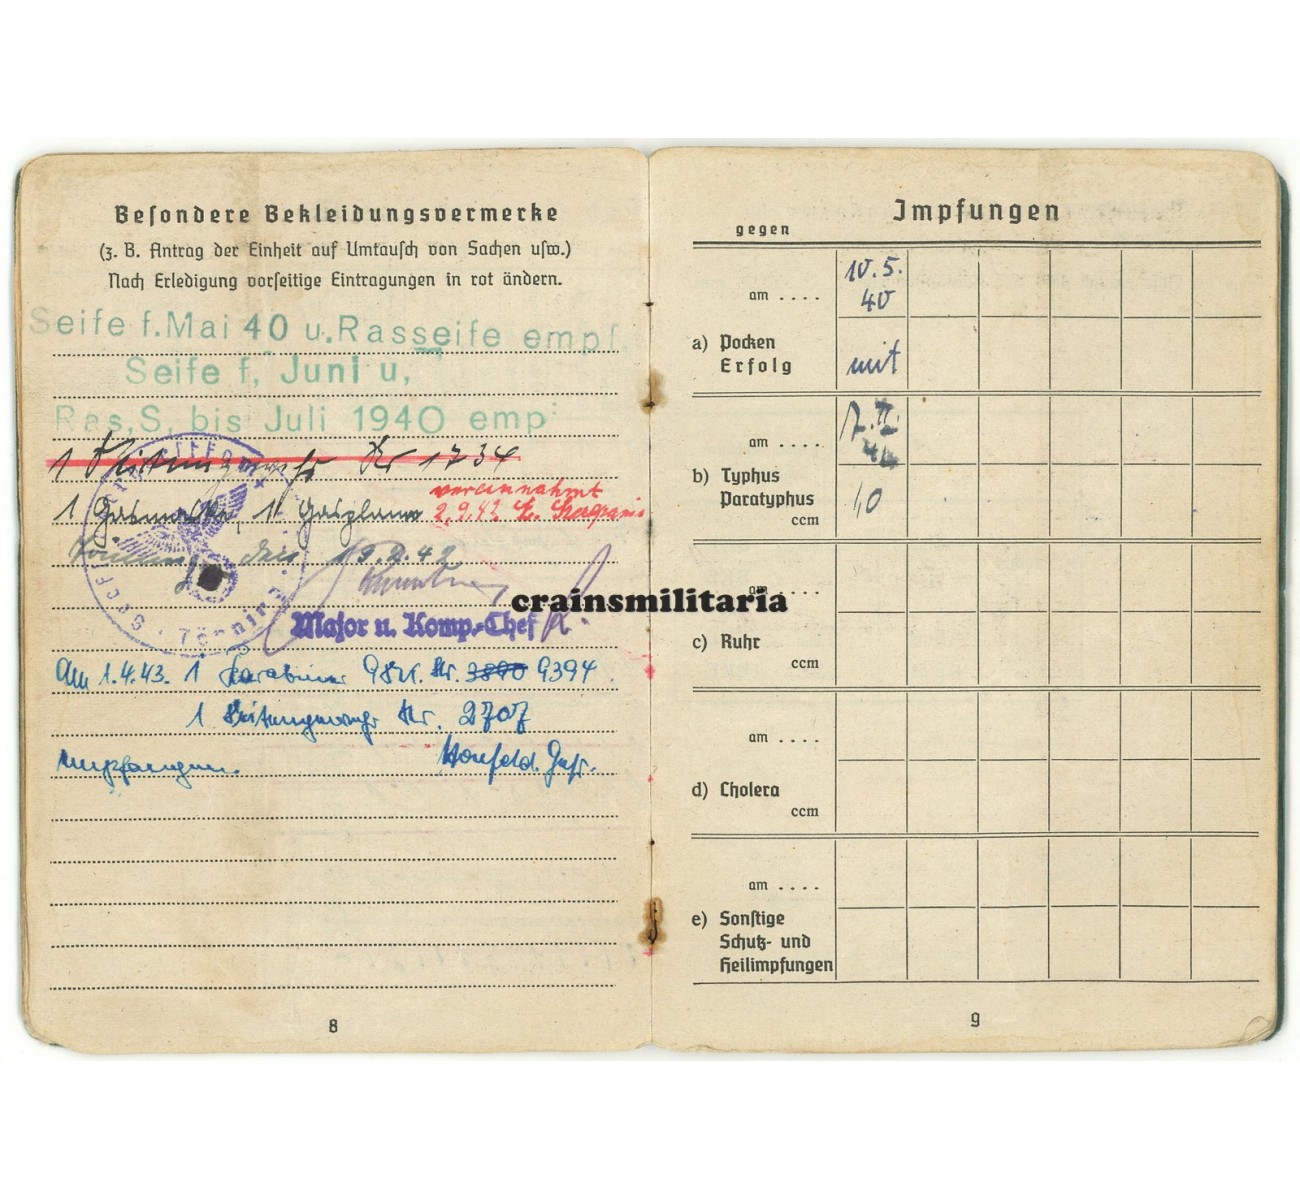 Besondere Bekleidungsvermerke
(z. B. Antrag der Einheit auf Umtausch von Sachen usw.)
Nach Erledigung vorseitige Eintragungen in rot ändern.
Seife f. Mai 40 u. Rasseife empf.
Seife f, Juni u,
Ras, S, bis Juli 1940 emp
1 Nr 1734
1 Gasmaske, 1 Gasplane
vereinnahmt
2.9.42
den 19.2.42
Major u. Komp.-Chef
crainsmilitaria
Am 1.4.43. 1 Karabiner 98k. Nr. 3890 9394
1 Seitengewehr Nr. 2707
empfangen. Gefr.
8
Impfungen
gegen
am . . . .
10.5.
40
a) Pocken
Erfolg
mit
am . . . .
b) Typhus
Paratyphus
ccm
10
am . . . .
c) Ruhr
ccm
am . . . .
d) Cholera
ccm
am . . . .
e) Sonstige
Schutz- und
Heilimpfungen
9